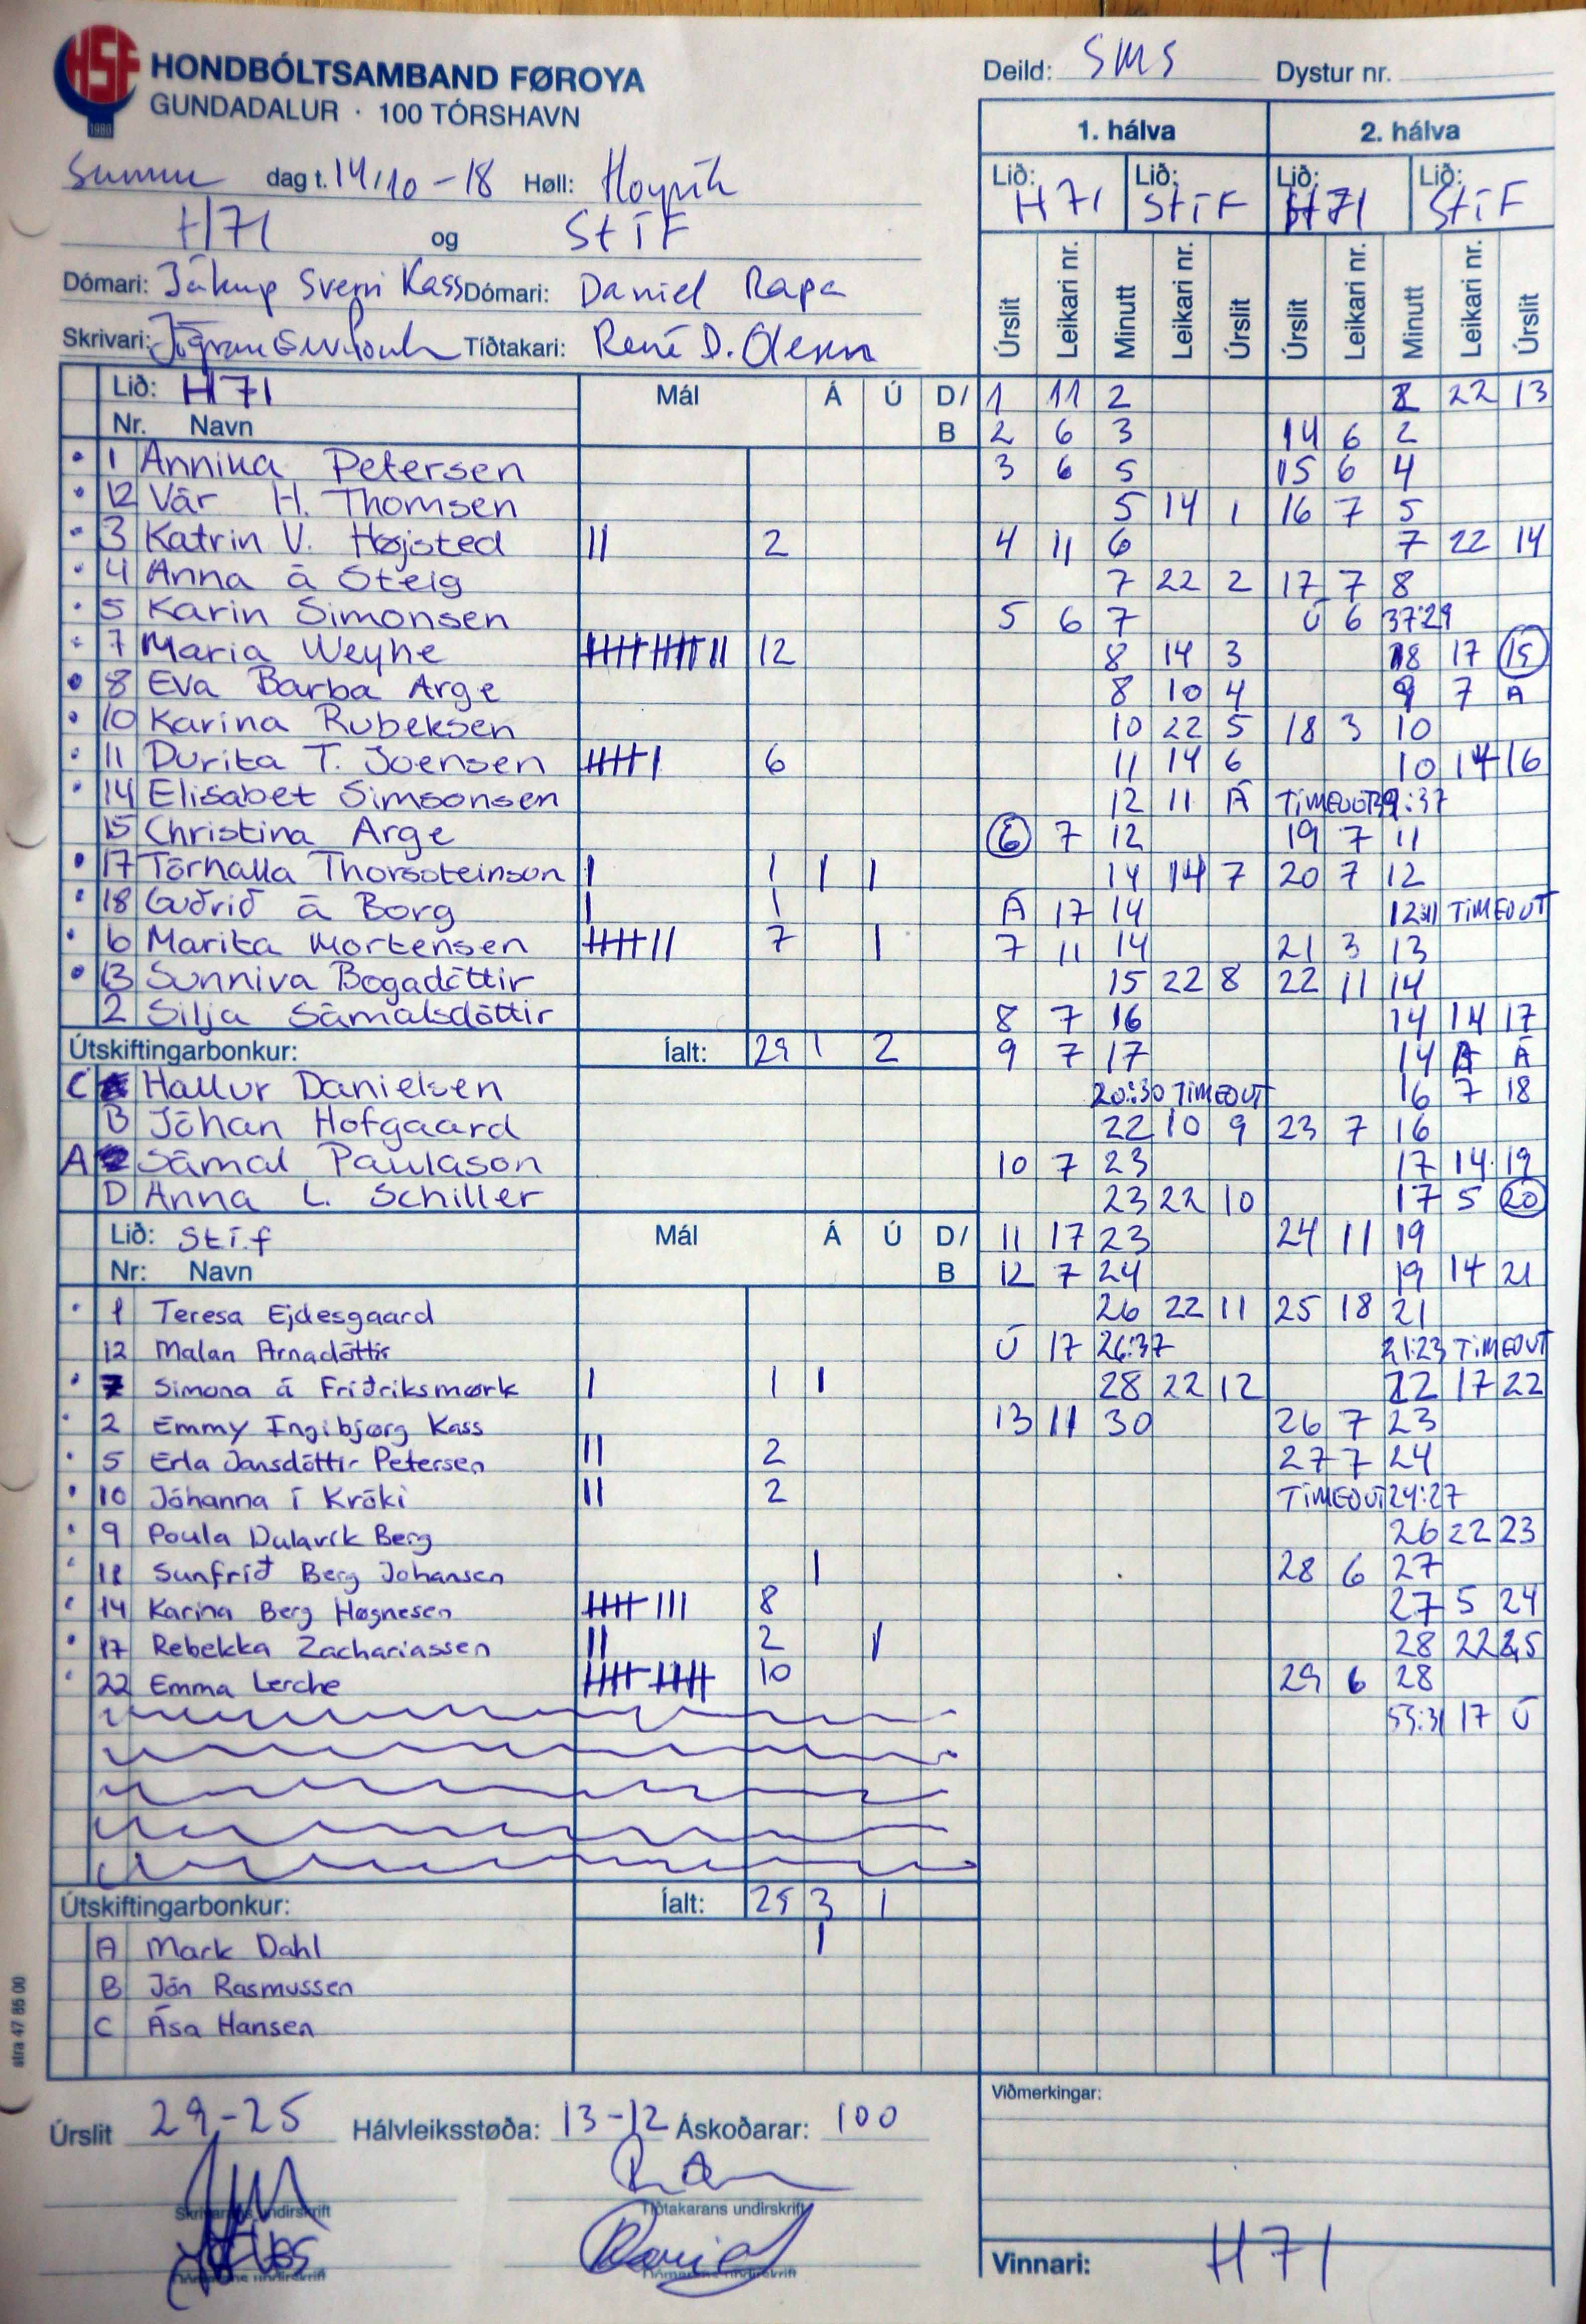 HSF
1980
HONDBÓLTSAMBAND FØROYA
GUNDADALUR · 100 TÓRSHAVN
Deild: SMS Dystur nr.
1. hálva 2. hálva
dag t. 14/10-18 Høll:
Lið: H71 Lið: StíF Lið: H71 Lið: StíF
H71 og StíF
Dómari: Jákup Sverri Kass Dómari: Daniel Rapa
Skrivari: Tíðtakari: René D. Olsen
Úrslit Leikari nr. Minutt Leikari nr. Úrslit Úrslit Leikari nr. Minutt Leikari nr. Úrslit
Lið: H71 Mál Á Ú D/B
Nr. Navn
1 Annika Petersen
12 Vár H. Thomsen
3 Katrin V. Højsted II 2
4 Anna á Steig
5 Karin Simonsen
7 Maria Weyhe 12
8 Eva Barba Arge
10 Karina Rubeksen
11 Durita T. Joensen 6
14 Elisabet Simsonsen
15 Christina Arge
17 Tórhalla Thorsteinson I 1 I I
18 Guðrið á Borg I 1
6 Marita Mortensen 7 I
13 Sunniva Bogadóttir
2 Silja Sámalsdóttir
Útskiftingarbonkur: Íalt: 29 1 2
C Hallur Danielsen
B Jóhan Hofgaard
A Sámal Paulason
D Anna L. Schiller
Lið: Stí.f Mál Á Ú D/B
Nr: Navn
1 Teresa Ejdesgaard
12 Malan Arnadóttir
7 Simona á Friðriksmørk I 1 I
2 Emmy Ingibjørg Kass
5 Erla Jansdóttir Petersen II 2
10 Jóhanna í Króki II 2
9 Poula Dalavík Berg
18 Sunfríð Berg Johansen I
14 Karina Berg Høgnesen 8
17 Rebekka Zachariassen II 2 I
22 Emma Lerche 10
Útskiftingarbonkur: Íalt: 25 3 1
A Mark Dahl I
B Jón Rasmussen
C Ása Hansen
1 11 2
2 6 3
3 6 5
5 14 1
4 11 6
7 22 2
5 6 7
8 14 3
8 10 4
10 22 5
11 14 6
12 11 Á
6 7 12
14 14 7
Á 17 14
7 11 14
15 22 8
8 7 16
9 7 17
20:30 TIMEOUT
22 10 9
10 7 23
23 22 10
11 17 23
12 7 24
26 22 11
Ú 17 26:37
28 22 12
13 11 30
22 13
14 6 2
15 6 4
16 7 5
7 22 14
17 7 8
Ú 6 37:29
8 17 15
9 7 Á
18 3 10
10 14 16
TIMEOUT 39:37
19 7 11
20 7 12
TIMEOUT
21 3 13
22 11 14
14 14 17
14 A Á
16 7 18
23 7 16
17 14 19
17 5 20
24 11 19
19 14 21
25 18 21
21:23 TIMEOUT
22 17 22
26 7 23
27 7 24
TIMEOUT 24:27
26 22 23
28 6 27
27 5 24
28 22 25
29 6 28
55:31 17 Ú
stra 47 85 00
Viðmerkingar:
Úrslit 29-25 Hálvleiksstøða: 13-12 Áskoðarar: 100
Skrivarans undirskrift Tíðtakarans undirskrift
Dómarans undirskrift Dómarans undirskrift
Vinnari: H71